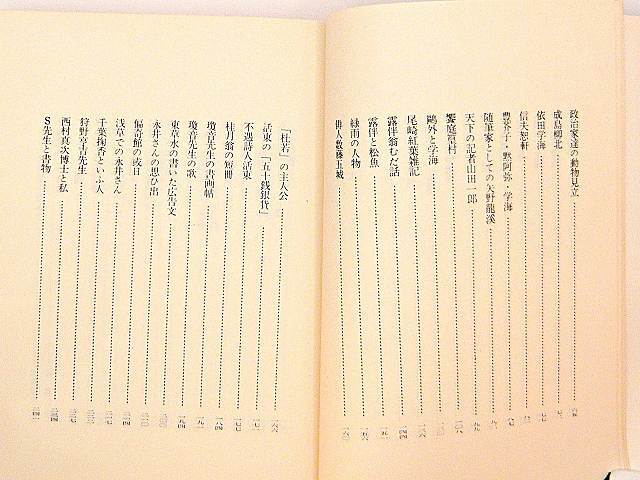 政治家達の動物見立
成島柳北
依田学海
信夫恕軒
豊芥子・黙阿弥・学海
随筆家としての矢野龍溪
天下の記者山田一郎
饗庭篁村
鷗外と学海
尾崎紅葉雑記
露伴翁むだ話
露伴と松魚
緑雨の人物
俳人数藤五城
「杜若」の主人公
活東の「五十銭銀貨」
不遇詩人活東
桂月翁の短冊
瓊音先生の書画帖
瓊音先生の歌
東草水の書いた広告文
永井さんの思ひ出
偏奇館の或日
浅草での永井さん
千葉掬香といふ人
狩野亨吉先生
西村真次博士と私
S先生と書物